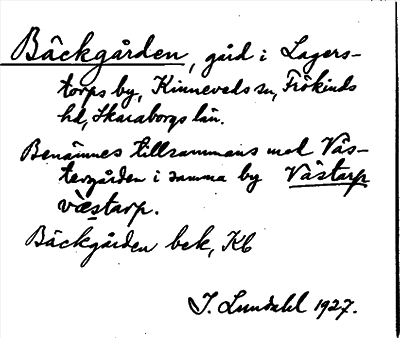 Bäckgården, gård i Lagers-
torps by, Kinneveds sn, Frökinds
hd, Skaraborgs län.
Benämnes tillsammans med Väs-
tergården i samma by Västarp
væstarp.
Bäckgården bek, Kb
I. Lundahl 1927.